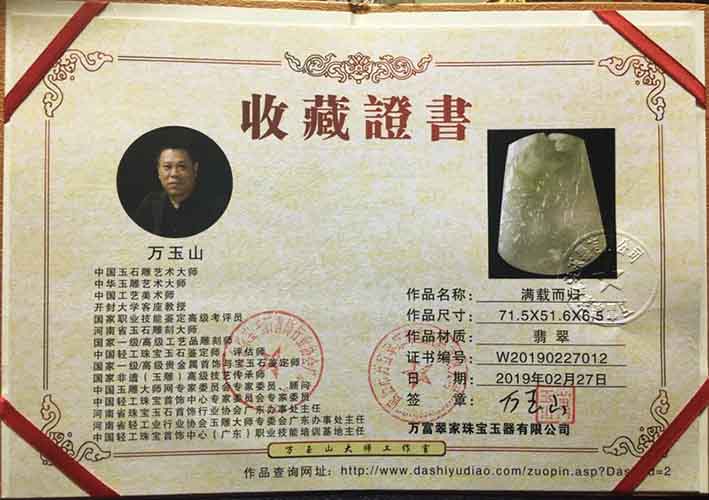 收藏證書
万玉山
中国玉石雕艺术大师
中华玉雕艺术大师
中国工艺美术师
开封大学客座教授
国家职业技能鉴定高级考评员
河南省玉石雕刻大师
国家一级/高级工艺品雕刻师
中国轻工珠宝玉石鉴定师、评估师
国家一级/高级贵金属首饰与宝玉石鉴定师
国家非遗（玉雕）高级技艺传承师
中国玉雕大师网专家委员会专家委员、顾问
中国轻工珠宝首饰中心专家委员会专家委员
河南省珠宝玉石首饰行业协会广东办事处主任
河南省轻工业行业协会玉雕大师专委会广东办事处主任
中国轻工珠宝首饰中心（广东）职业技能培训基地主任
作品名称： 满载而归
作品尺寸： 71.5X51.6X6.5
作品材质： 翡翠
证书编号： W20190227012
日 期： 2019年02月27日
签 章： 万玉山
万富翠家珠宝玉器有限公司
万玉山大师工作室
作品查询网址：http://www.dashiyudiao.com/zuopin.asp?Das id=2